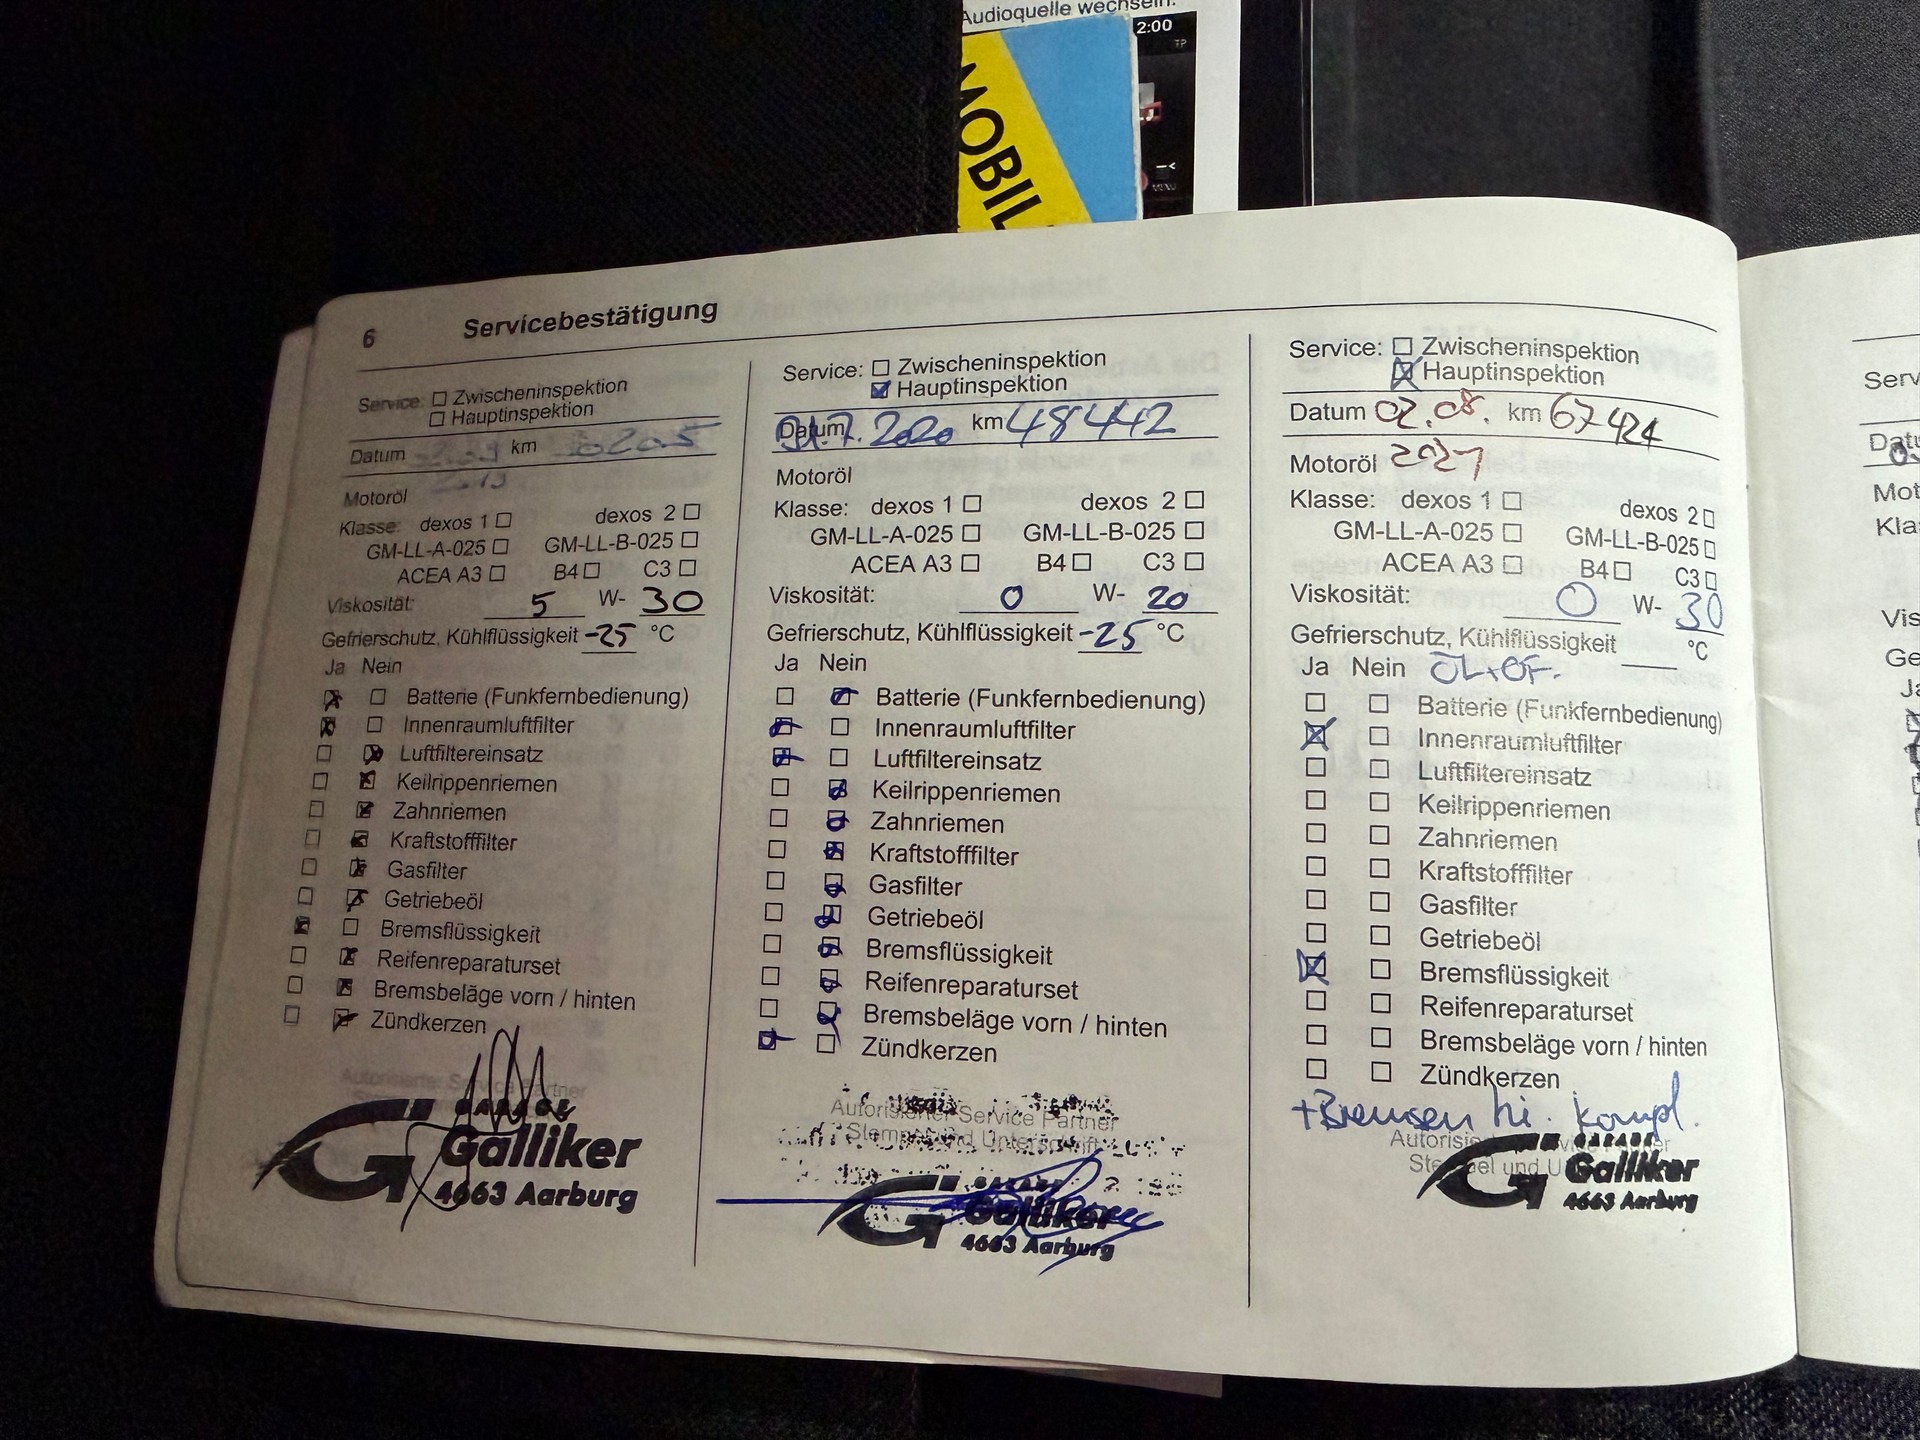 Audioquelle wechseln.
2:00
TP
MENU
MOBIL
6 Servicebestätigung
Service: ☐ Zwischeninspektion
☐ Hauptinspektion
Datum km
2019
Motoröl
Klasse: dexos 1 ☐ dexos 2 ☐
GM-LL-A-025 ☐ GM-LL-B-025 ☐
ACEA A3 ☐ B4 ☐ C3 ☐
Viskosität: 5 W- 30
Gefrierschutz, Kühlflüssigkeit -25 °C
Ja Nein
☒ ☐ Batterie (Funkfernbedienung)
☒ ☐ Innenraumluftfilter
☐ ☒ Luftfiltereinsatz
☐ ☒ Keilrippenriemen
☐ ☒ Zahnriemen
☐ ☒ Kraftstofffilter
☐ ☒ Gasfilter
☐ ☒ Getriebeöl
☒ ☐ Bremsflüssigkeit
☐ ☒ Reifenreparaturset
☐ ☒ Bremsbeläge vorn / hinten
☐ ☒ Zündkerzen
Autorisierter Service Partner
GARAGE
Galliker
4663 Aarburg
Service: ☐ Zwischeninspektion
☒ Hauptinspektion
Datum 7. 2020 km 48442
Motoröl
Klasse: dexos 1 ☐ dexos 2 ☐
GM-LL-A-025 ☐ GM-LL-B-025 ☐
ACEA A3 ☐ B4 ☐ C3 ☐
Viskosität: 0 W- 20
Gefrierschutz, Kühlflüssigkeit -25 °C
Ja Nein
☐ ☒ Batterie (Funkfernbedienung)
☒ ☐ Innenraumluftfilter
☒ ☐ Luftfiltereinsatz
☐ ☒ Keilrippenriemen
☐ ☒ Zahnriemen
☐ ☒ Kraftstofffilter
☐ ☒ Gasfilter
☐ ☒ Getriebeöl
☐ ☒ Bremsflüssigkeit
☐ ☒ Reifenreparaturset
☐ ☒ Bremsbeläge vorn / hinten
☒ ☐ Zündkerzen
Autorisierter Service Partner
Stempel und Unterschrift
GARAGE
Galliker
4663 Aarburg
Service: ☐ Zwischeninspektion
☒ Hauptinspektion
Datum 02.08. km 67424
Motoröl 2021
Klasse: dexos 1 ☐ dexos 2 ☐
GM-LL-A-025 ☐ GM-LL-B-025 ☐
ACEA A3 ☐ B4 ☐ C3 ☐
Viskosität: 0 W- 30
Gefrierschutz, Kühlflüssigkeit °C
Ja Nein ÖL+ÖF.
☐ ☐ Batterie (Funkfernbedienung)
☒ ☐ Innenraumluftfilter
☐ ☐ Luftfiltereinsatz
☐ ☐ Keilrippenriemen
☐ ☐ Zahnriemen
☐ ☐ Kraftstofffilter
☐ ☐ Gasfilter
☐ ☐ Getriebeöl
☒ ☐ Bremsflüssigkeit
☐ ☐ Reifenreparaturset
☐ ☐ Bremsbeläge vorn / hinten
☐ ☐ Zündkerzen
+Bremsen hi. kompl.
GARAGE
Galliker
4663 Aarburg
Serv
Mot
Kla
Vis
Ge